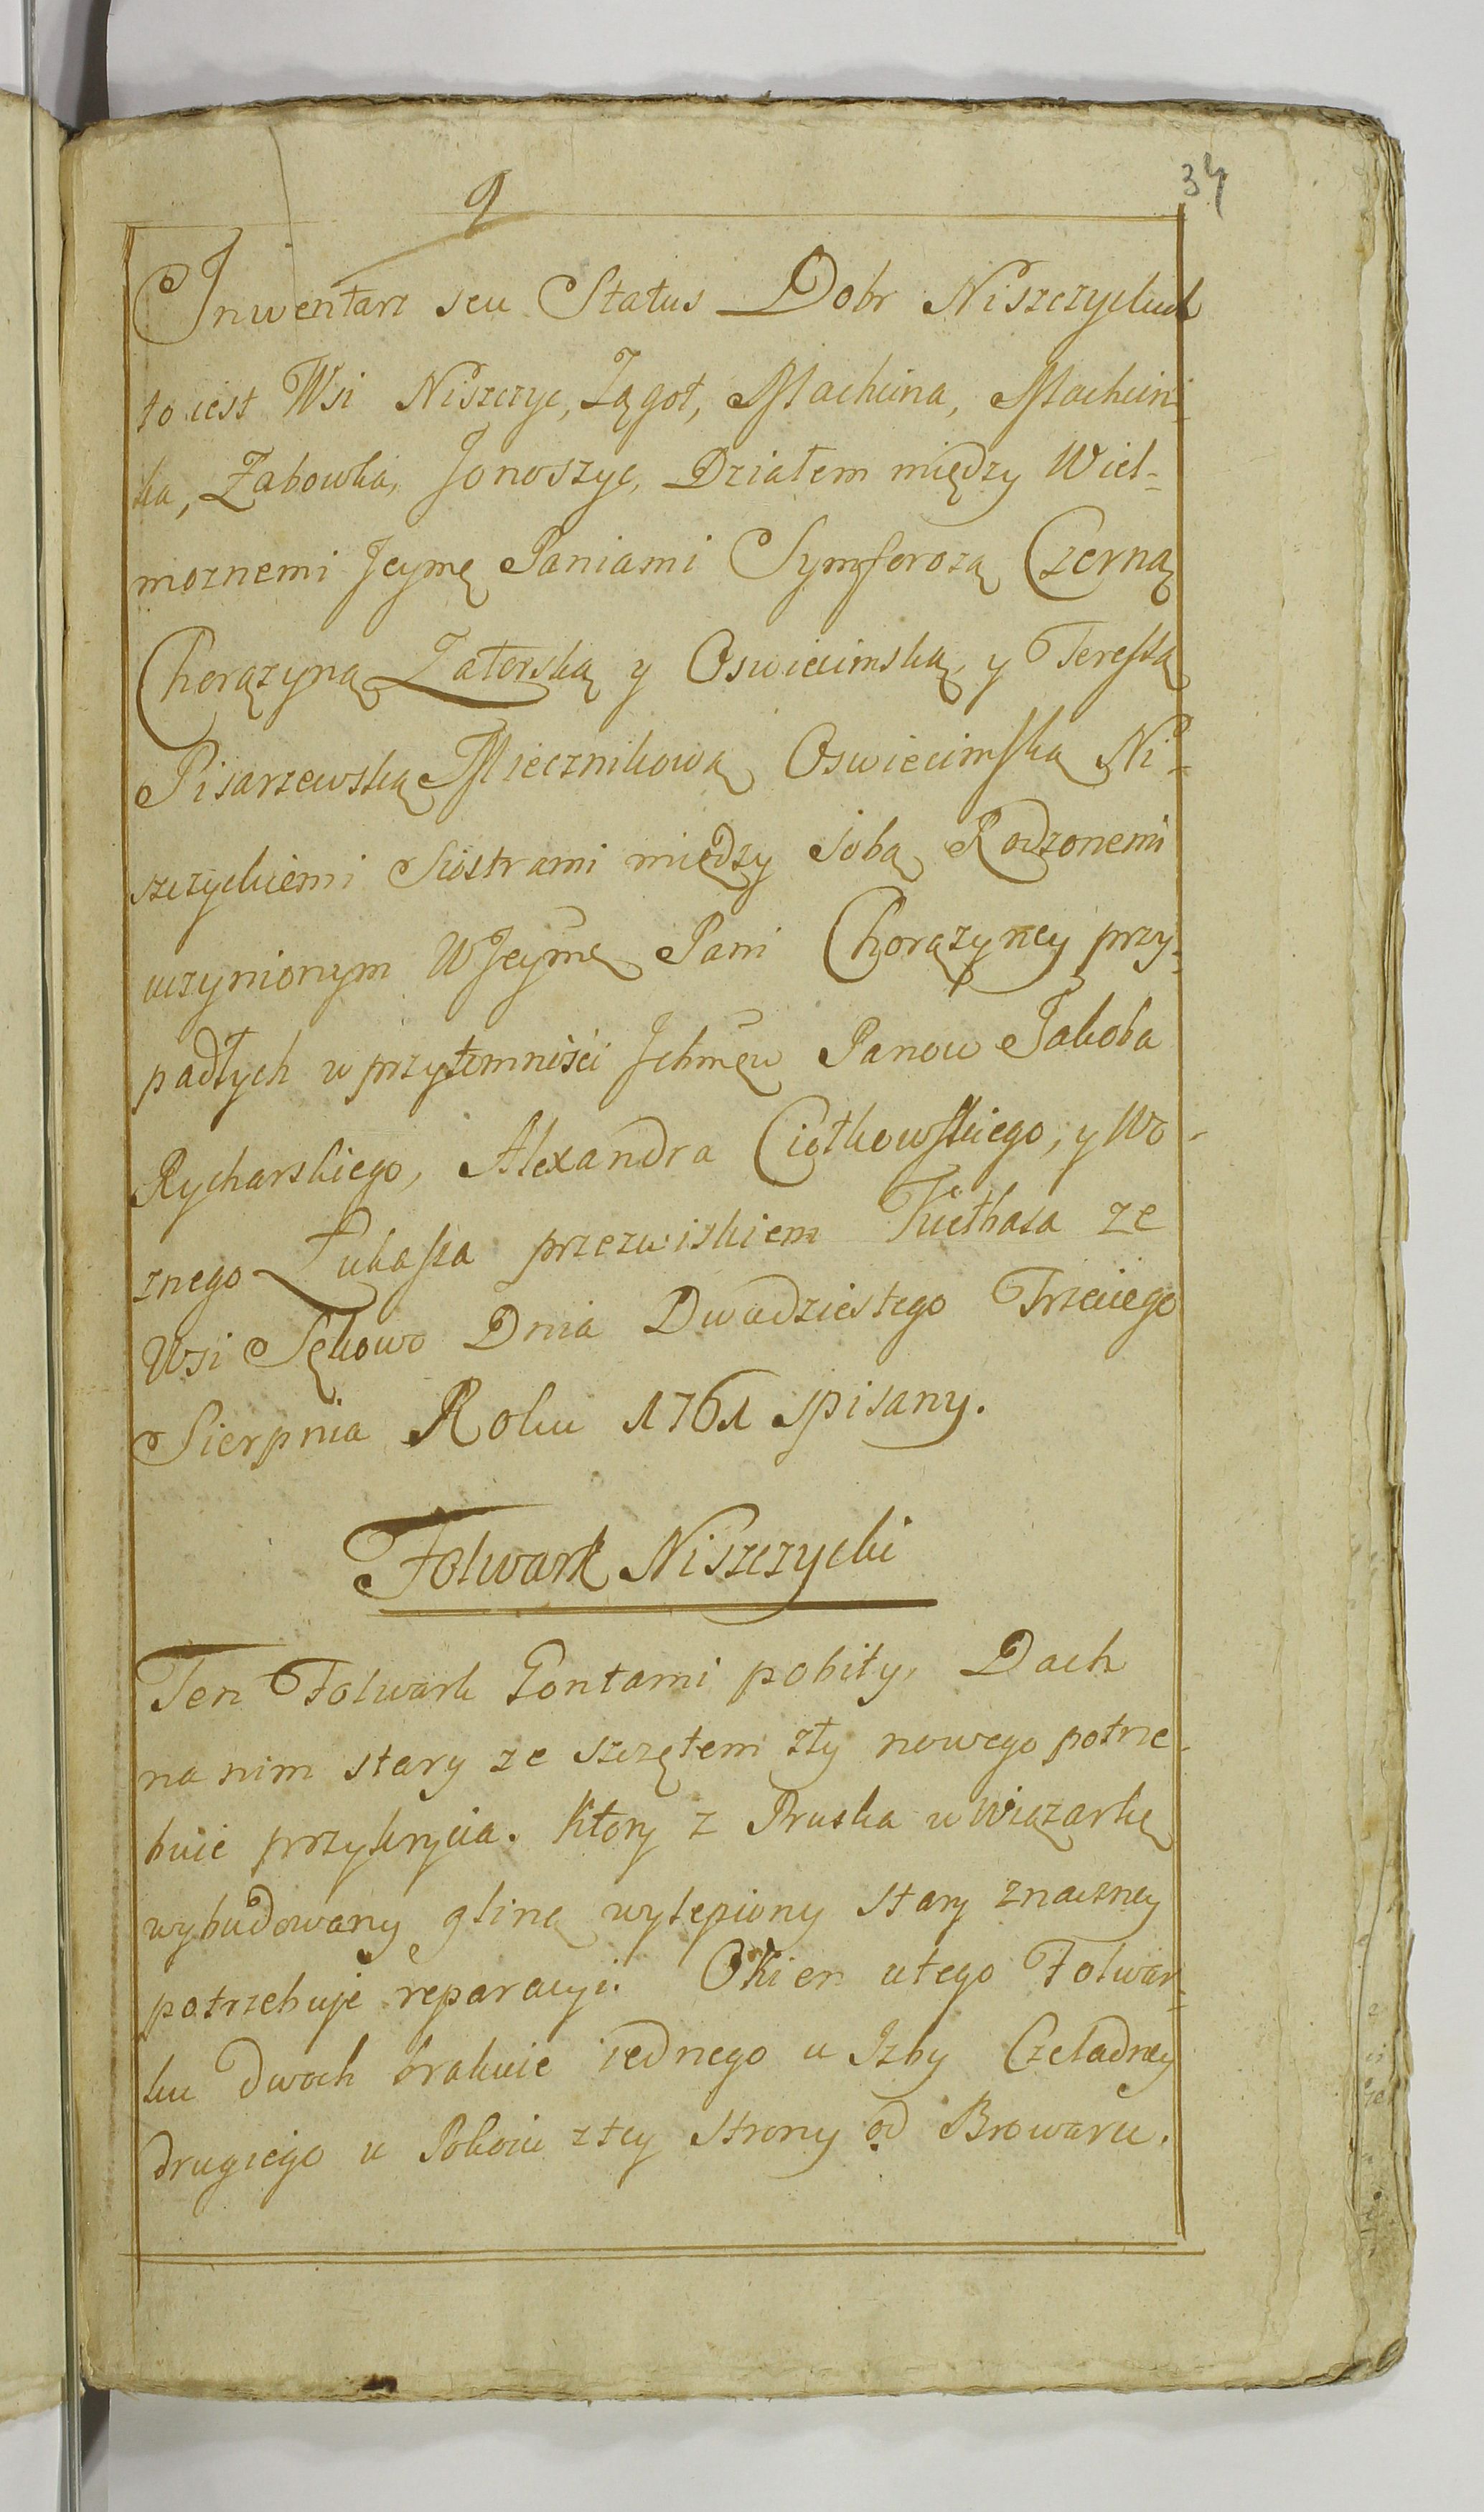 34
9
Inwentarz seu Status Dobr Niszczyckich
to iest Wsi Niszczyc, Łągot, Machcina, Machcin-
ka, Żabowka, Jonoszyc, Działem między Wiel-
moznemi Jeymę Paniami Symforozą Czerną
Chorązyną Zatorską y Oswiecimską, y Teressą
Pisarzewską Miecznikową Oswiecimską Ni-
szczyckiemi Siostrami między sobą Rodzonemi
uczynionym WJeymę Pani Chorązyney przy-
padłych w przytomności Ichmęw Panow Jakoba
Rycharskiego, Alexandra Ciołkowskiego, y Wo-
znego Łukasza przezwiskiem Kiełbasa ze
Wsi Sękowo Dnia Dwudziestego Trzeciego
Sierpnia Roku 1761 spisany.
Folwark Niszczycki
Ten Folwark Gontami pobity, Dach
na nim stary ze szczętem zły nowego potrze-
buie przykrycia. Ktory z Pruska w Wiązarkę
wybudowany gliną wylepiony stary znaczney
potrzebuje reparacyi. Okien utego Folwar-
ku dwoch brakuie iednego u Izby Czeladney
drugiego u Pokoiu ztey Strony od Browaru.